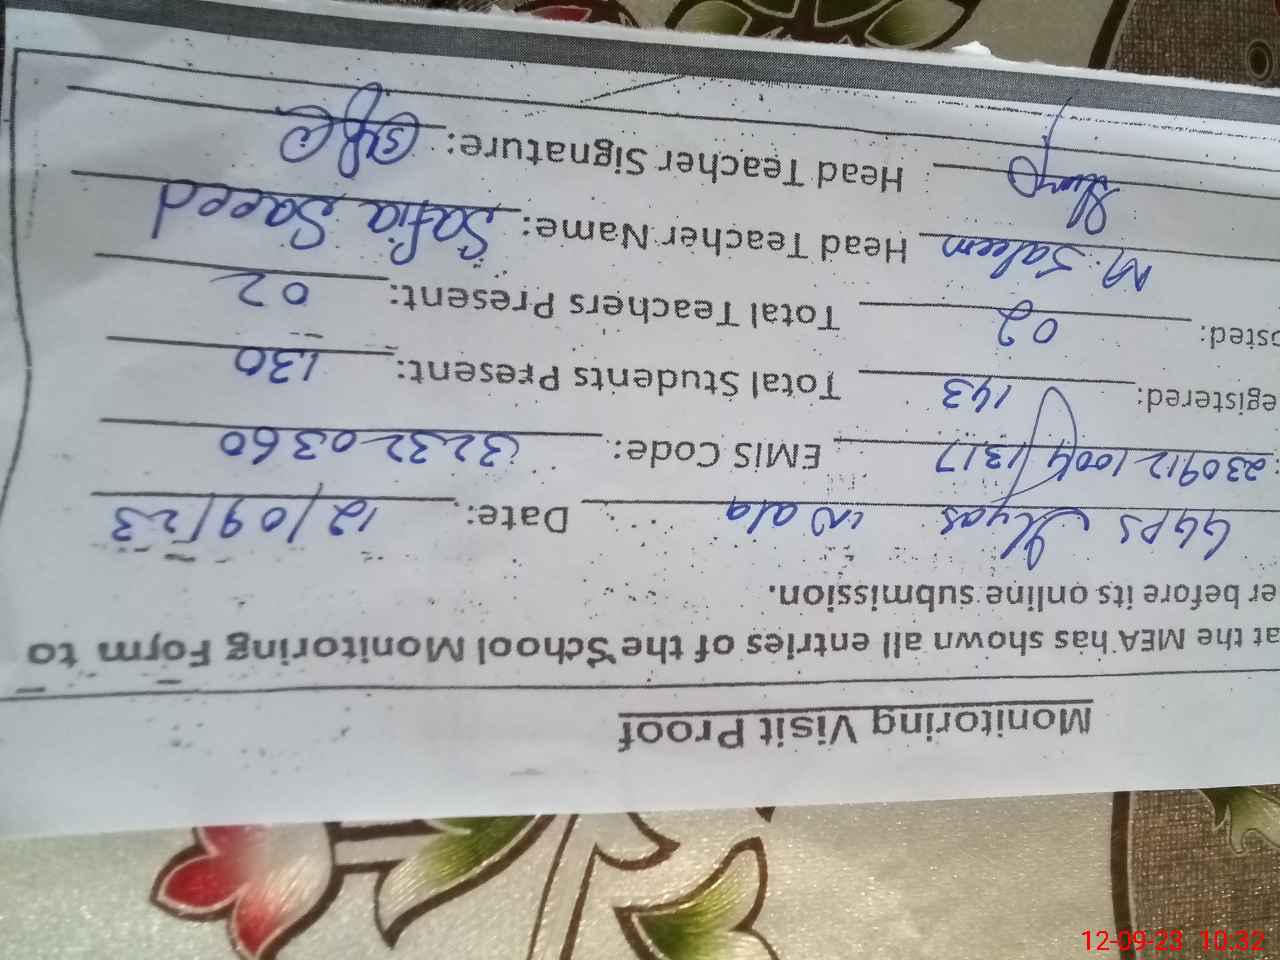 Monitoring Visit Proof
at the MEA has shown all entries of the School Monitoring Form to
er before its online submission.
GGPS Ilyas wala Date: 12/09/23
: 2309121004/1317 EMIS Code: 32320360
egistered: 143 Total Students Present: 130
osted: 02 Total Teachers Present: 02
M. Saleem Head Teacher Name: Safia Saeed
Head Teacher Signature:
12-09-23 10:32